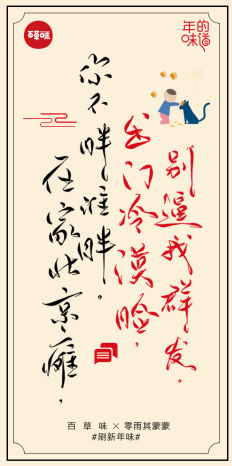 百草味
年的味道
在家北京瘫，
你不胖谁胖。
出门冷漠脸，
别逼我群发。
百草味 × 零雨其蒙蒙
#刷新年味#